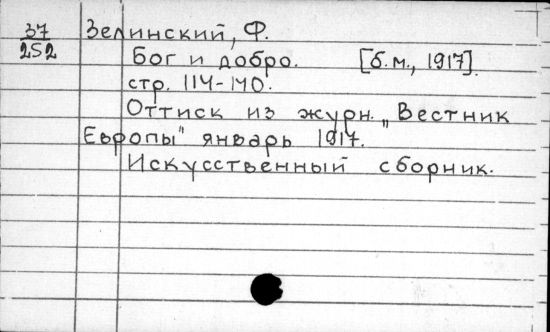 37
252
Зелинский, Ф.
Бог и добро. [б.м., 1917].
стр. 114-140.
Оттиск из журн. „Вестник
Европы" январь 1917.
Искусственный сборник.